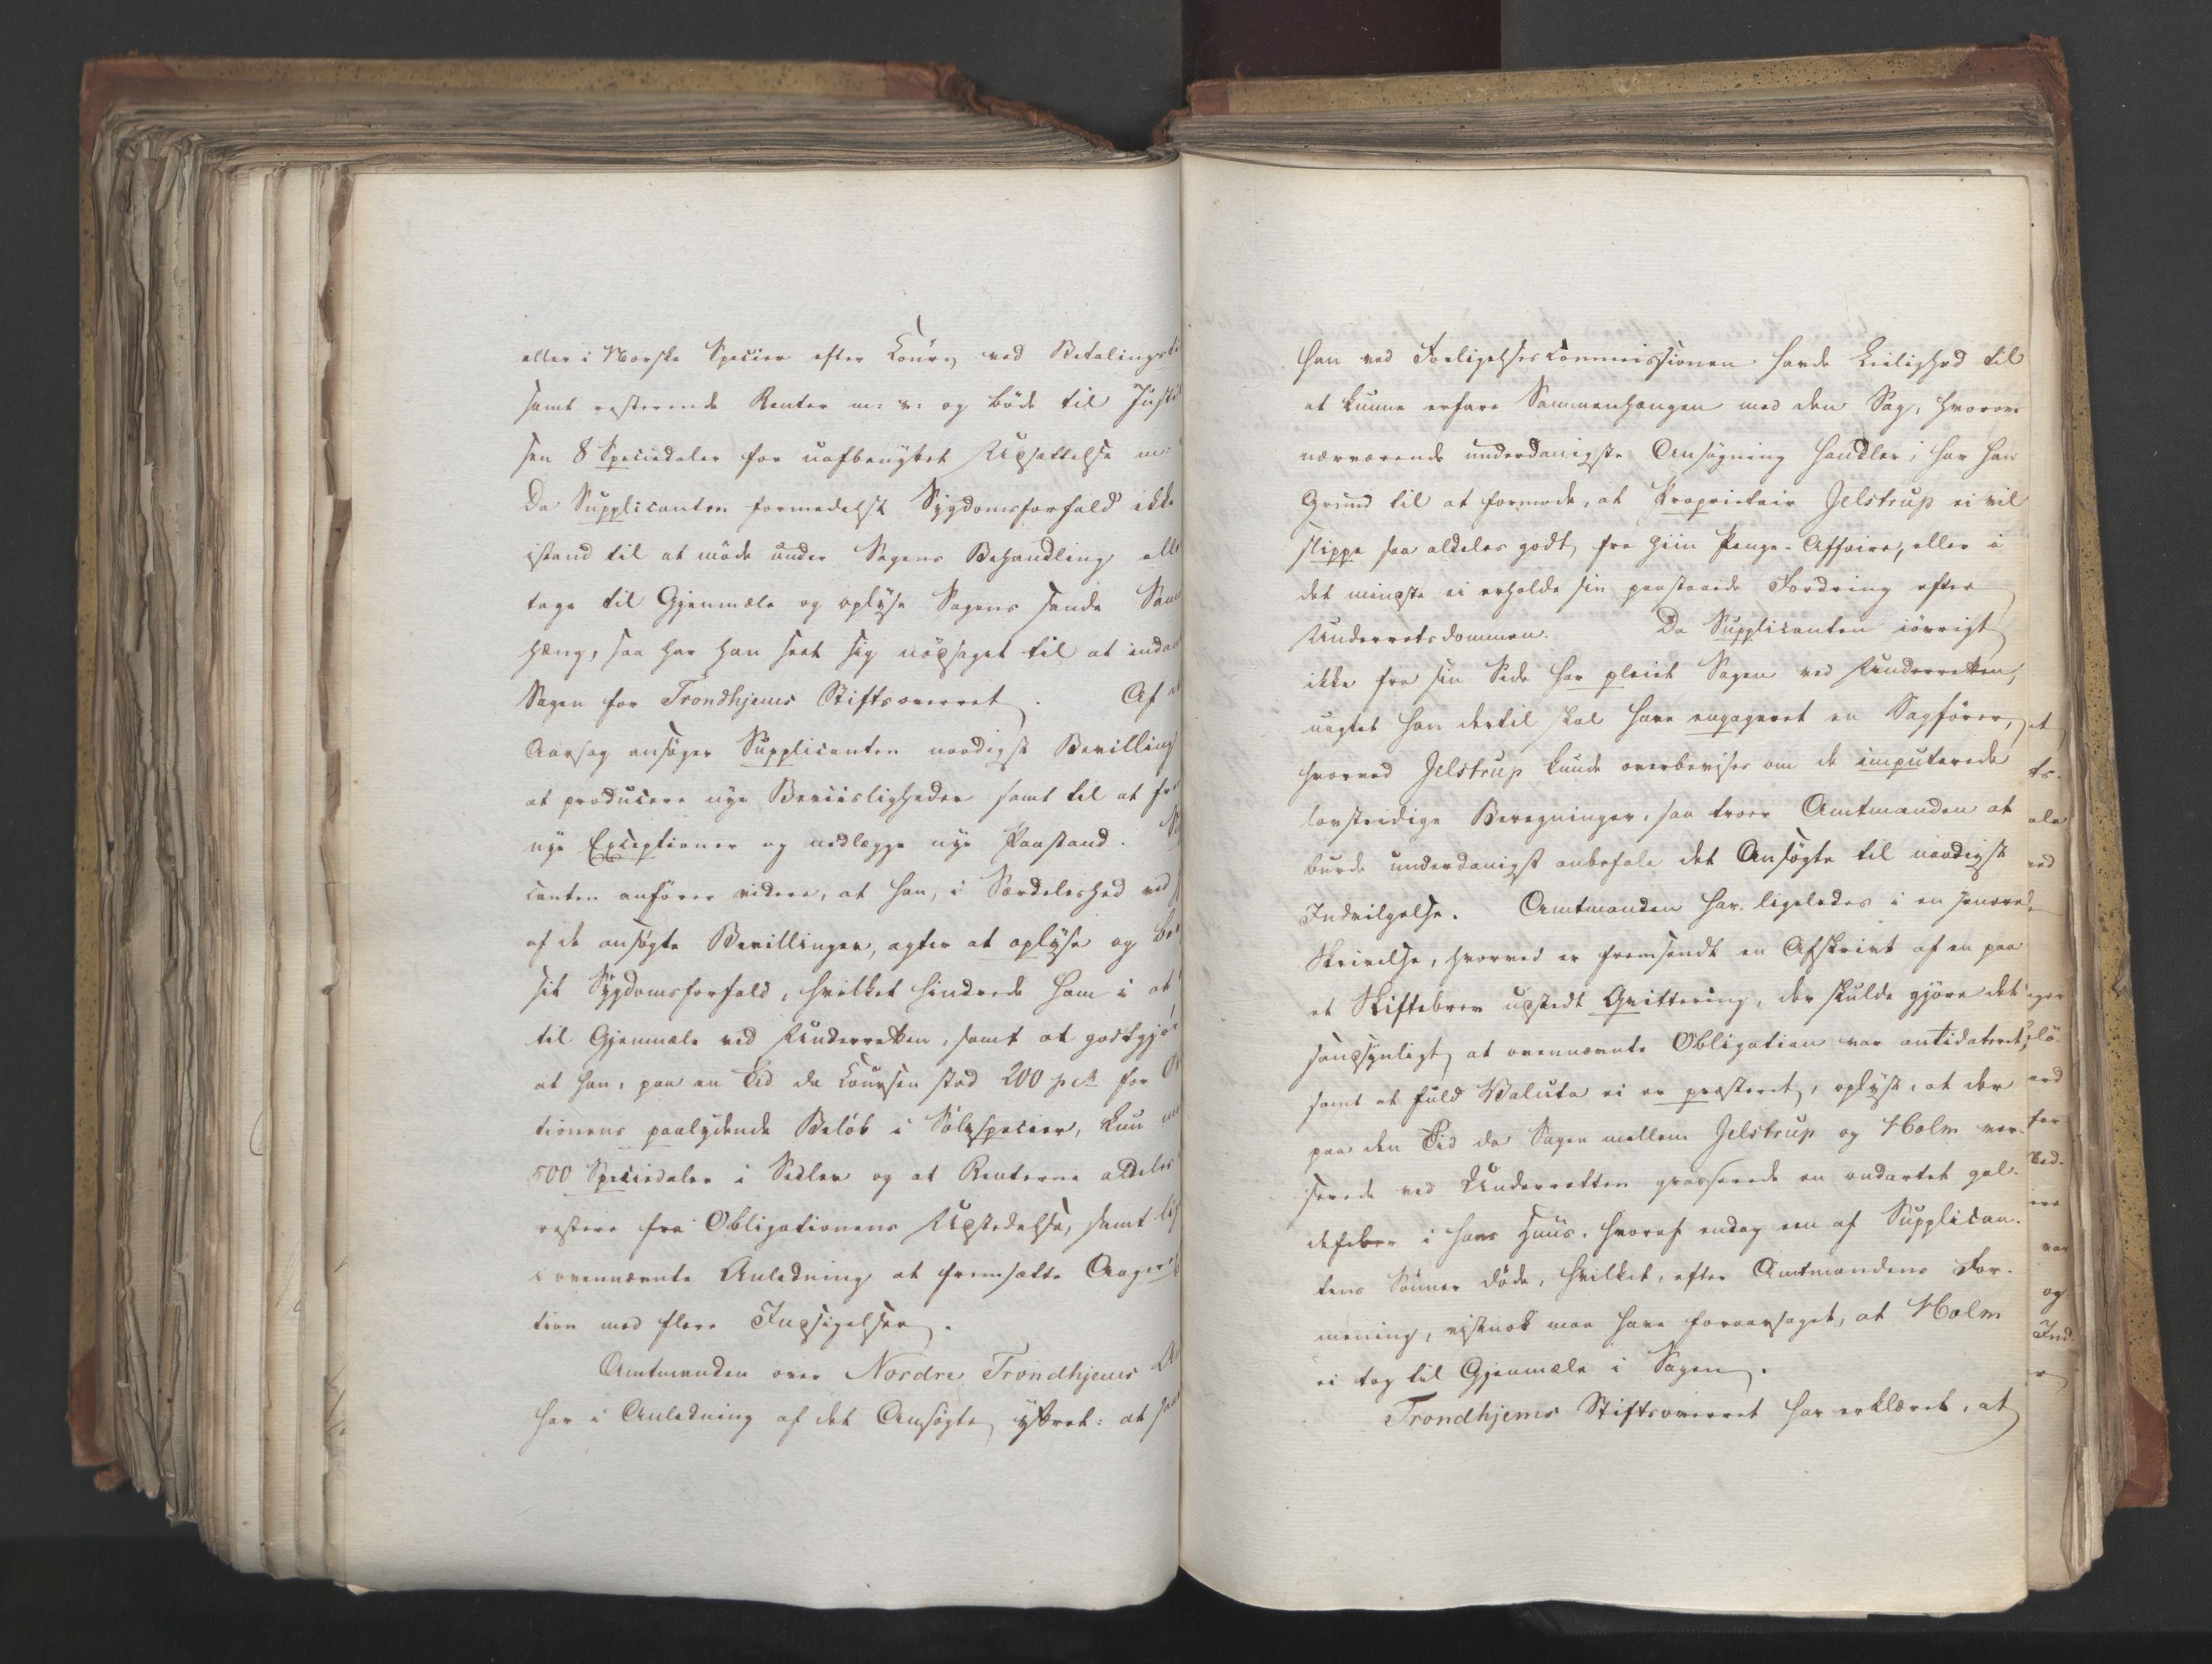 eller i Norske Specier efter Coursen ved Betalingsti
samt resterende Renter m: v: og bøde til Justi
sen 8 Speciedaler for ubeføyet Udsættelse m:
Da Supplicanten formedelst Sygdomsforfald ikke
istand til at møde under Sagens Behandling elle
tage til Gjenmæle og oplyse Sagens sande Sam
hæng, saa har han seet sig nødsaget til at inda
Sagen for Trondhjems Stiftsoverret. Af
Aarsag ansøger Supplicanten naadigst Bevilling
at producere nye Beviisligheder samt til at fre
nye Exceptioner og nedlægge nye Paastand.
canten anfører videre, at han, i Særdeleshed ved
af de ansøgte Bevillinger, agter at oplyse og be
sit Sygdomsforfald, hvilket hindrede ham i at
til Gjenmæle ved Underretten, samt at godtgjø
at han, paa en Tid da Coursen stod 200 pct for
tionens paalydende Beløb i Sølvspecier, kun
500 Speciedaler i Sedler og at Renterne aldeles
restere fra Obligationens Udstedelse, samt
i ovennævnte Anledning at fremsætte Aager
tion med flere Indsigelser.
Amtmanden over Nordre Trondhjems
har i Anledning af det Ansøgte yttret: at
han ved Forligelses Commissionen havde Leilighed til
at kunne erfare Sammenhængen med den Sag, hvorom
nærværende underdanigste Ansøgning handler; har han
Grund til at formode, at Proprietair Jelstrup ei vil
slippe saa aldeles godt fra hiin Penge-Affaire, eller i
det mindste ei erholde sin paastaaede Fordring efter
Underretsdommen. Da Supplicanten iøvrigt
ikke fra sin Side har pleiet Sagen ved Underretten,
uagtet han dertil skal have engageret en Sagfører,
hvorved Jelstrup kunde overbevises om de imputerede
lovstridige Beregninger, saa troer Amtmanden at
burde underdanigst anbefale det Ansøgte til naadigst
Indvilgelse. Amtmanden har ligeledes i en senere
Skrivelse, hvorved er fremsendt en Afskrivt af en paa
et Skiftebrev udstedt Qvittering, der skulde gjøre det
sandsynligt at ovennævnte Obligation var antidateret,
samt at fuld Valuta ei er præsteret, oplyst, at der
paa den Tid da Sagen mellem Jelstrup og Holm ver-
serede ved Underretten grasserede en ondartet gal-
defeber i hans Huus, hvoraf endog een af Supplican-
tens Sønner døde, hvilket, efter Amtmandens For-
mening, vistnok maa have foraarsaget, at Holm
ei tog til Gjenmæle i Sagen.
Trondhjems Stiftsoverret har erklæret, at